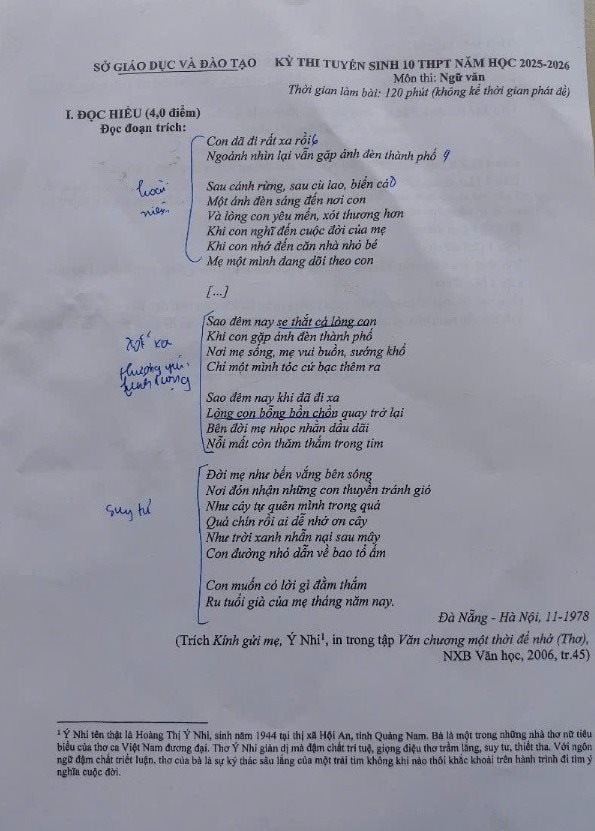 SỞ GIÁO DỤC VÀ ĐÀO TẠO KỲ THI TUYỂN SINH 10 THPT NĂM HỌC 2025-2026
Môn thi: Ngữ văn
Thời gian làm bài: 120 phút (không kể thời gian phát đề)
I. ĐỌC HIỂU (4,0 điểm)
Đọc đoạn trích:
Con đã đi rất xa rồi
Ngoảnh nhìn lại vẫn gặp ánh đèn thành phố
Sau cánh rừng, sau cù lao, biển cả
Một ánh đèn sáng đến nơi con
Và lòng con yêu mến, xót thương hơn
Khi con nghĩ đến cuộc đời của mẹ
Khi con nhớ đến căn nhà nhỏ bé
Mẹ một mình đang dõi theo con
hoài
niệm
[...]
Sao đêm nay se thắt cả lòng con
Khi con gặp ánh đèn thành phố
Nơi mẹ sống, mẹ vui buồn, sướng khổ
Chỉ một mình tóc cứ bạc thêm ra
Sao đêm nay khi đã đi xa
Lòng con bỗng bồn chồn quay trở lại
Bên đời mẹ nhọc nhằn dầu dãi
Nỗi mất còn thăm thẳm trong tim
xót xa
Đời mẹ như bến vắng bên sông
Nơi đón nhận những con thuyền tránh gió
Như cây tự quên mình trong quả
Quả chín rồi ai dễ nhớ ơn cây
Như trời xanh nhẫn nại sau mây
Con đường nhỏ dẫn về bao tổ ấm
suy tư
Con muốn có lời gì đằm thắm
Ru tuổi già của mẹ tháng năm nay.
Đà Nẵng - Hà Nội, 11-1978
(Trích Kính gửi mẹ, Ý Nhi¹, in trong tập Văn chương một thời để nhớ (Thơ),
NXB Văn học, 2006, tr.45)
¹ Ý Nhi tên thật là Hoàng Thị Ý Nhi, sinh năm 1944 tại thị xã Hội An, tỉnh Quảng Nam. Bà là một trong những nhà thơ nữ tiêu
biểu của thơ ca Việt Nam đương đại. Thơ Ý Nhi giản dị mà đậm chất trí tuệ, giọng điệu thơ trầm lắng, suy tư, thiết tha. Với ngôn
ngữ đậm chất triết luận, thơ của bà là sự ký thác sâu lắng của một trái tim không khi nào thôi khắc khoải trên hành trình đi tìm ý
nghĩa cuộc đời.